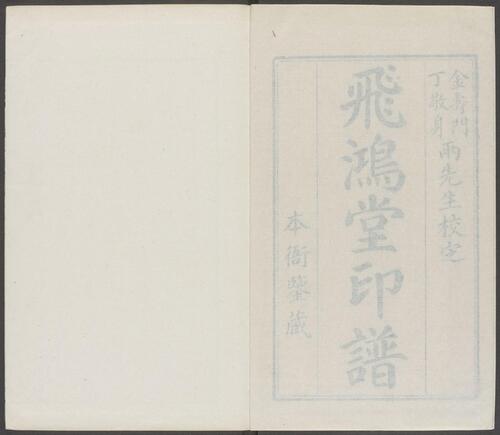 金壽門丁敬身兩先生校定
飛鴻堂印譜
本衙鑒藏